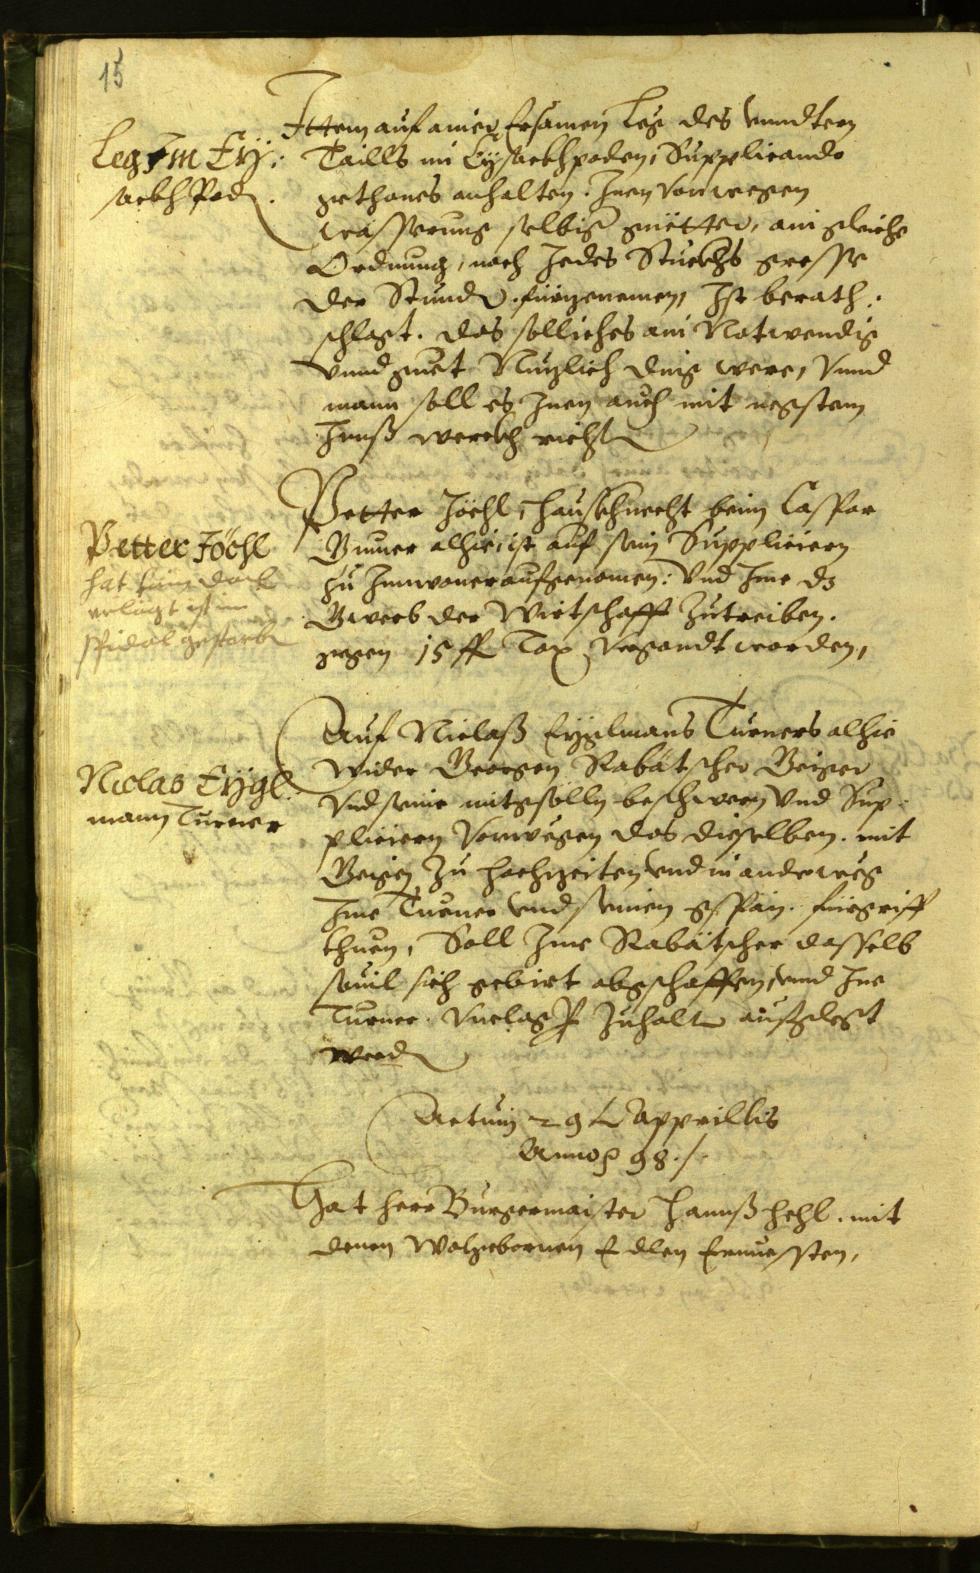 15
Leg Im Eÿ:
sackh Pod.
Ittem auf ainer Ersamen Leg des vnndtern
Taills im Eÿsackhpoden, Supplicando
gethanes anhalten. Inen von wegen
wasserung selbig guetter, ain gleiche
Ordnung, nach Jedes Stuckhs grosse
der Stund. fürgenomen, Ist berath:
schlagt. das solliches ain Notwendig
vnnd guet Nuzlich ding were, Vnnd
mann soll es Inen auch mit negstem
Inns werckh richt
Petter Jöchl
hat sein
erlegt ist im
spidal gestorb
Petter Jöchl, haussknecht beim Caspar
alhie, ist auf sein Suppliciern
zu Innwoner aufgenomen: Vnd Ime dz
Gwerb der Wirtschafft zutreiben.
gegen 15 fl Tax vergandt worden,
Niclas Eÿgl
mann Turner
Auf Niclaß Eÿgelmans Turners alhie
Wider Georgen Rabatscher Geiger
Vnd seine mitgsölln beschwern Vnd Sup:
pliciern Vonwegen das dieselben. mit
Geigen zu hochzeiten vnd in anderweg
Ime Turner vnd seinen gspän. fürgriff
thuen, Soll Ime Rabatscher dasselb
souil sich gebirt abgeschaffen, vnnd Ine
Turner. zuhalt auferlegt
werd
Actum 29 Apprillis
Anno 98./.
Hat herr Burgermaister Hannß hehl. mit
denen Wolgebornen Edlen Ernuessten,